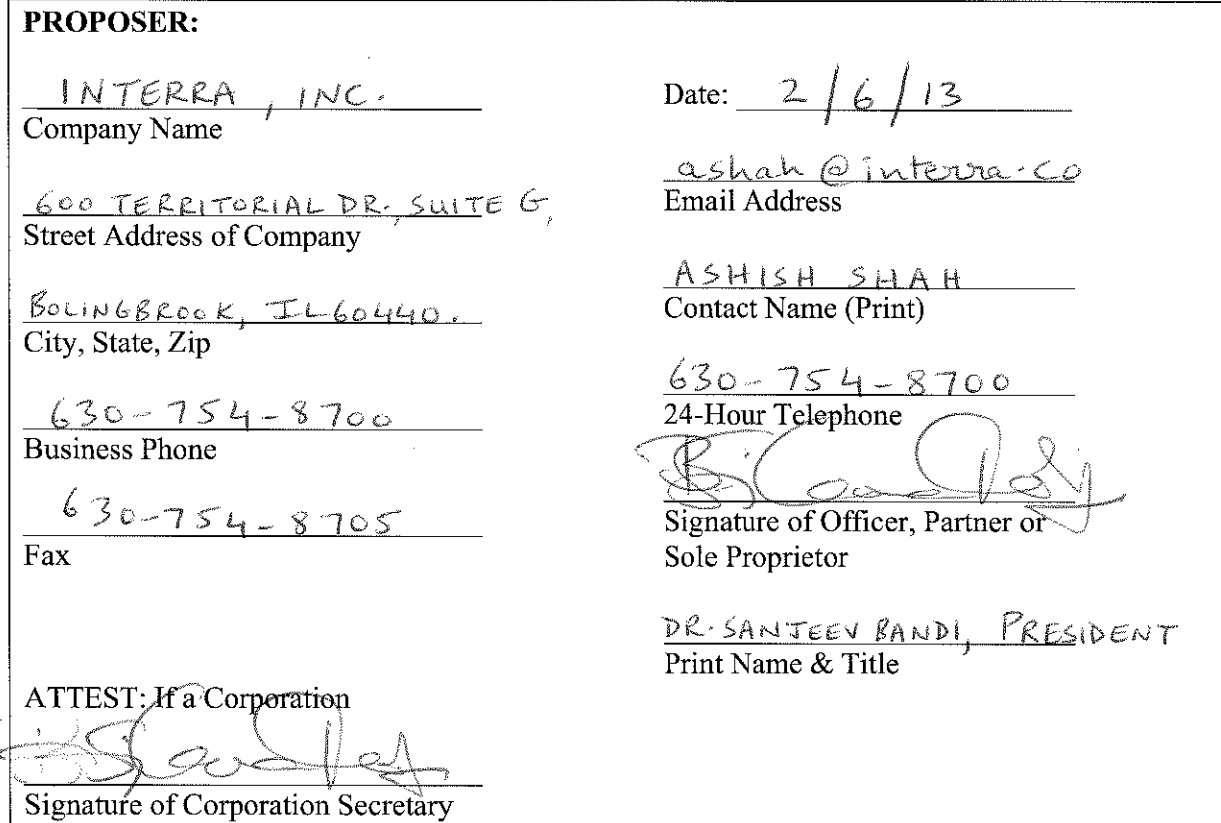 PROPOSER:
INTERRA, INC.
Company Name
600 TERRITORIAL DR., SUITE G,
Street Address of Company
BOLINGBROOK, IL 60440.
City, State, Zip
630-754-8700
Business Phone
630-754-8705
Fax
ATTEST: If a Corporation
Signature of Corporation Secretary
Date: 2/6/13
ashah@interra.co
Email Address
ASHISH SHAH
Contact Name (Print)
630-754-8700
24-Hour Telephone
Signature of Officer, Partner or
Sole Proprietor
DR. SANJEEV BANDI, PRESIDENT
Print Name & Title